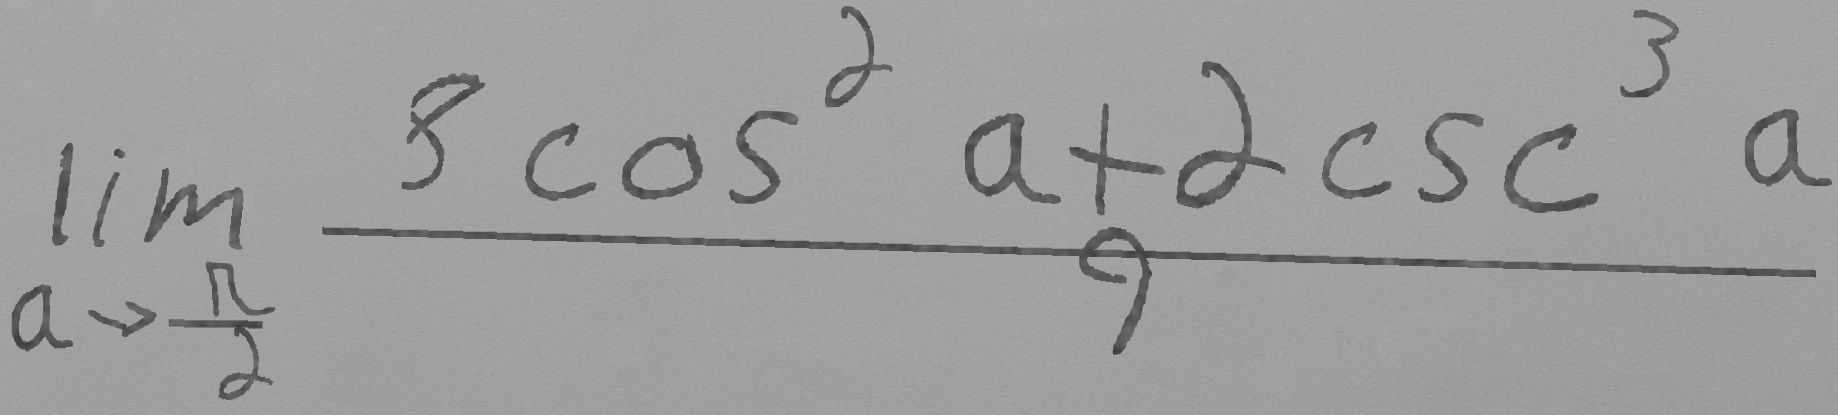 \lim_{a \to \frac{\pi}{2}} \frac{8 \cos^2 a + 2 \csc^3 a}{9}